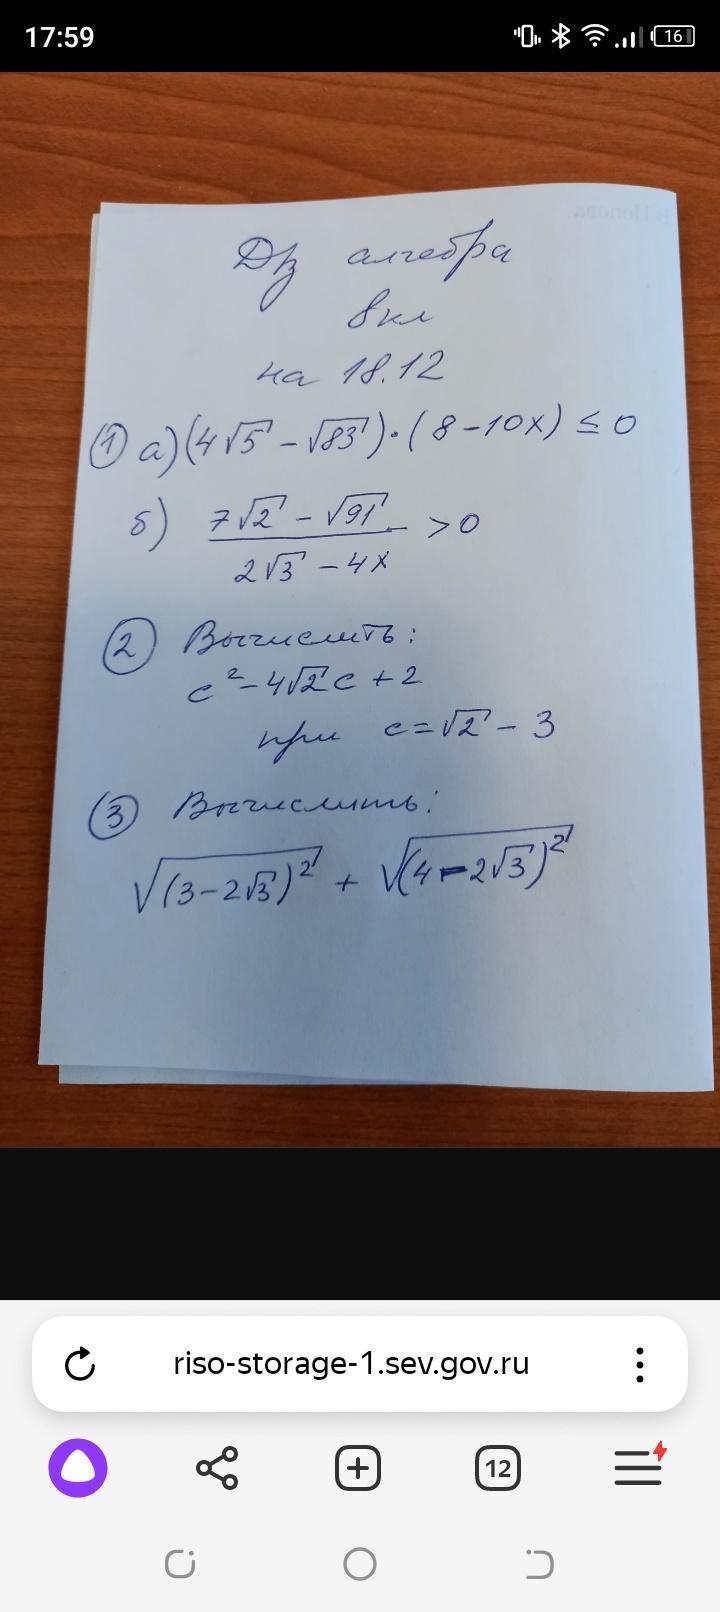 17:59
16
Дз алгебра
8кл
на 18.12
① а) (4√5 - √83) · (8 - 10x) ≤ 0
б) (7√2 - √91) / (2√3 - 4x) > 0
② Вычислить:
c² - 4√2c + 2
при c = √2 - 3
③ Вычислить:
√(3 - 2√3)² + √(4 - 2√3)²
riso-storage-1.sev.gov.ru
12